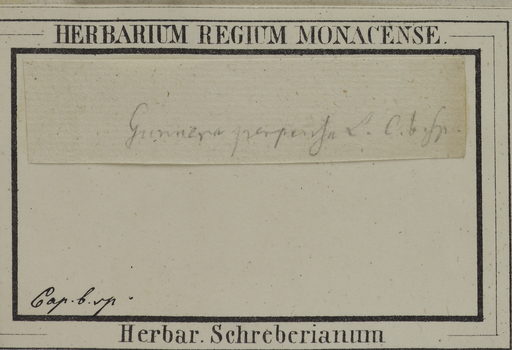 HERBARIUM REGIUM MONACENSE.
Gunnera perpensa L. C. b. Sp.
Cap. b. sp.
Herbar. Schreberianum